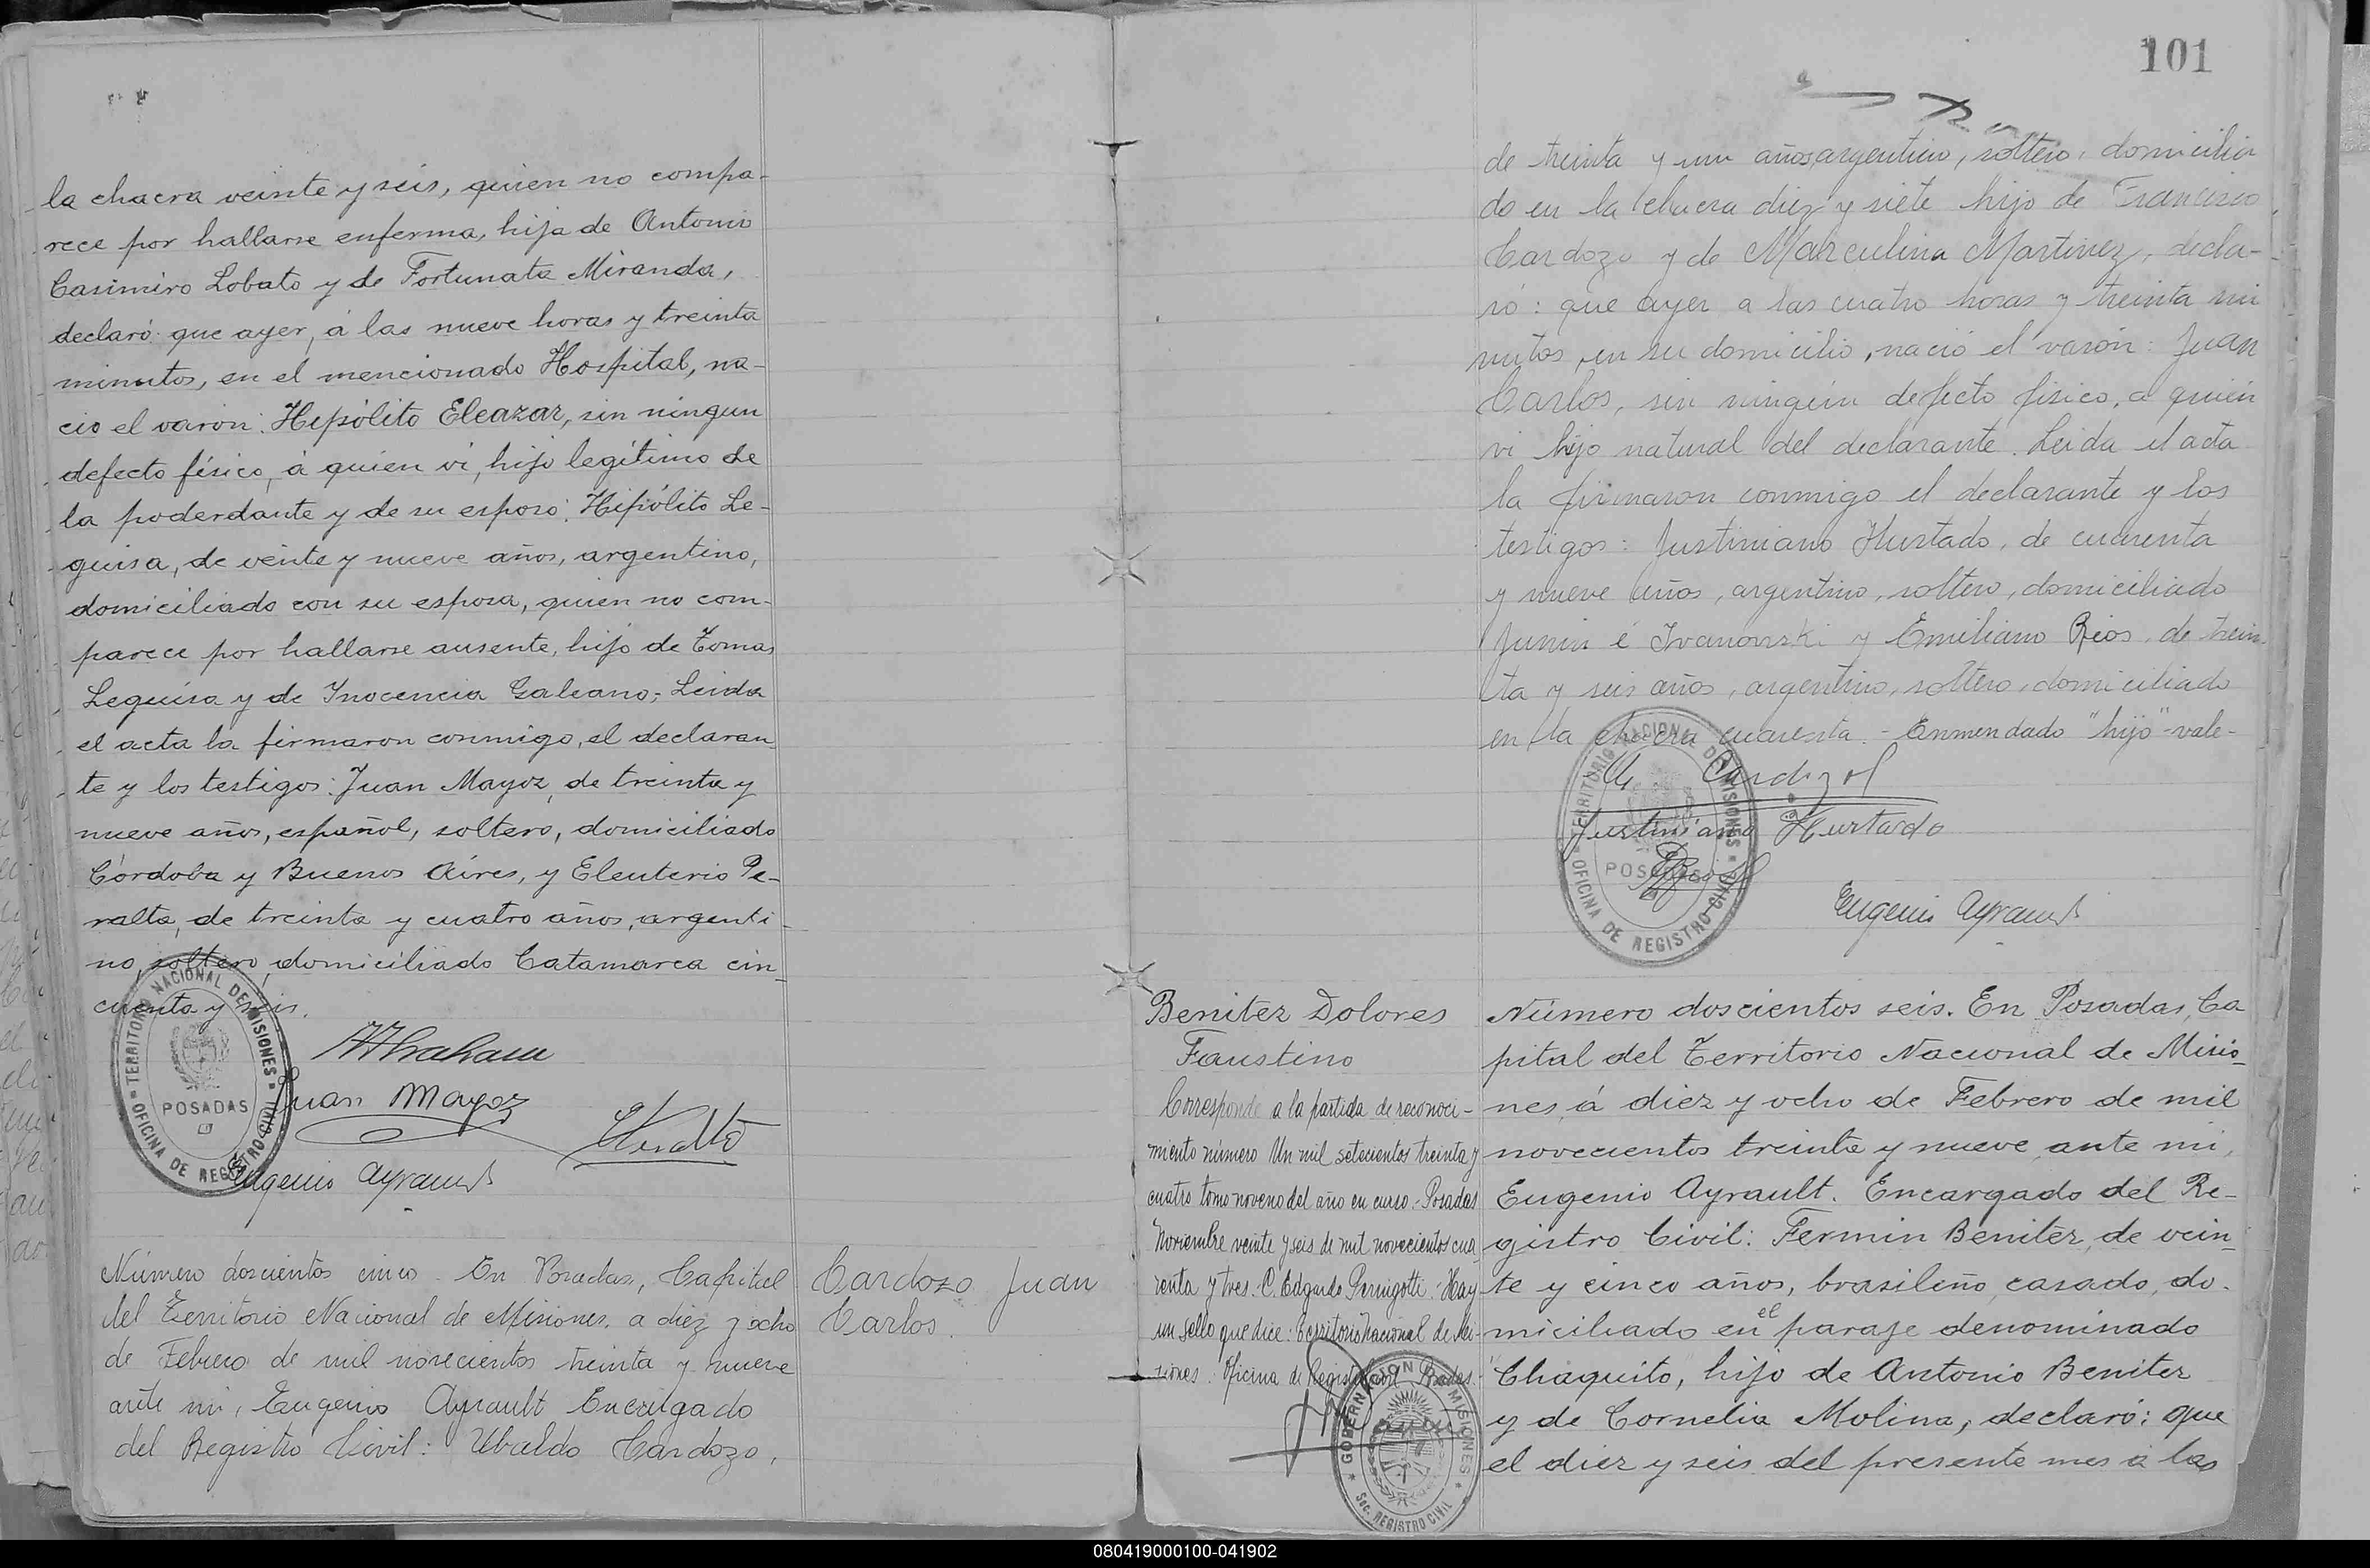 la chacra veinte y seis, quien no compa-
rece por hallarse enferma, hija de Antonio
Casimiro Lobato y de Fortunata Miranda,
declaró: que ayer, á las nueve horas y treinta
minutos, en el mencionado Hospital, na-
cio el varon: Hipólito Eleazar, sin ningun
defecto fisico, á quien vi, hijo legítimo de
la poderdante y de su esposo: Hipólito Le-
guisa, de veinte y nueve años, argentino,
domiciliado con su esposa, quien no com-
parece por hallarse ausente, hijo de Tomas
Leguisa y de Inocencia Galeano;- Leida
el acta la firmaron conmigo, el declaran-
te y los testigos: Juan Mayoz, de treinta y
nueve años, español, soltero, domiciliado
Córdoba y Buenos Aires, y Eleuterio Pe-
ralta, de treinta y cuatro años, argenti-
no, soltero, domiciliado Catamarca cin-
cuenta y seis.
TERRITORIO NACIONAL DE MISIONES
POSADAS
OFICINA DE REGISTRO CIVIL
Juan Mayoz
Eugenio Ayrault
Número doscientos cinco. En Posadas, Capital
del Territorio Nacional de Misiones, a diez y ocho
de Febrero de mil novecientos treinta y nueve
ante mi, Eugenio Ayrault Encargado
del Registro Civil: Ubaldo Cardozo,
Cardozo Juan
Carlos.
101
de treinta y un años, argentino, soltero, domicilia
do en la chacra diez y siete hijo de Francisco
Cardozo y de Marculina Martinez, decla-
ró: que ayer a las cuatro horas y treinta mi
nutos, en su domicilio, nació el varón: Juan
Carlos, sin ningún defecto fisico, a quien
vi hijo natural del declarante. Leida el acta
la firmaron conmigo el declarante y los
testigos: Justiniano Hurtado, de cuarenta
y nueve años, argentino, soltero, domiciliado
Junin é Ivanowski y Emiliano Rios, de trein-
ta y seis años, argentino, soltero, domiciliado
en la chacra cuarenta.- Enmendado "hijo"-vale-
TERRITORIO NACIONAL DE MISIONES
POSADAS
OFICINA DE REGISTRO CIVIL
U. Cardozo
Justiniano Hurtado
Eugenio Ayrault
Benitez Dolores
Faustino
Corresponde a la partida de reconoci-
miento número Un mil setecientos treinta y
cuatro tomo noveno del año en curso.- Posadas
Noviembre veinte y seis de mil novecientos cua
renta y tres.- C. Edgardo Pernigotti.- Hay
un sello que dice: Territorio Nacional de Mi-
siones. Oficina de Registro Civil Posadas.
GOBERNACION MISIONES
Sec. REGISTRO CIVIL
Número doscientos seis. En Posadas, Ca
pital del Territorio Nacional de Misio-
nes, á diez y ocho de Febrero de mil
novecientos treinta y nueve, ante mi,
Eugenio Ayrault. Encargado del Re-
gistro Civil: Fermin Benitez, de vein-
te y cinco años, brasileño, casado, do-
miciliado en el paraje denominado
"Chaquito, hijo de Antonio Benitez
y de Cornelia Molina, declaró: que
el diez y seis del presente mes á las
080419000100-041902